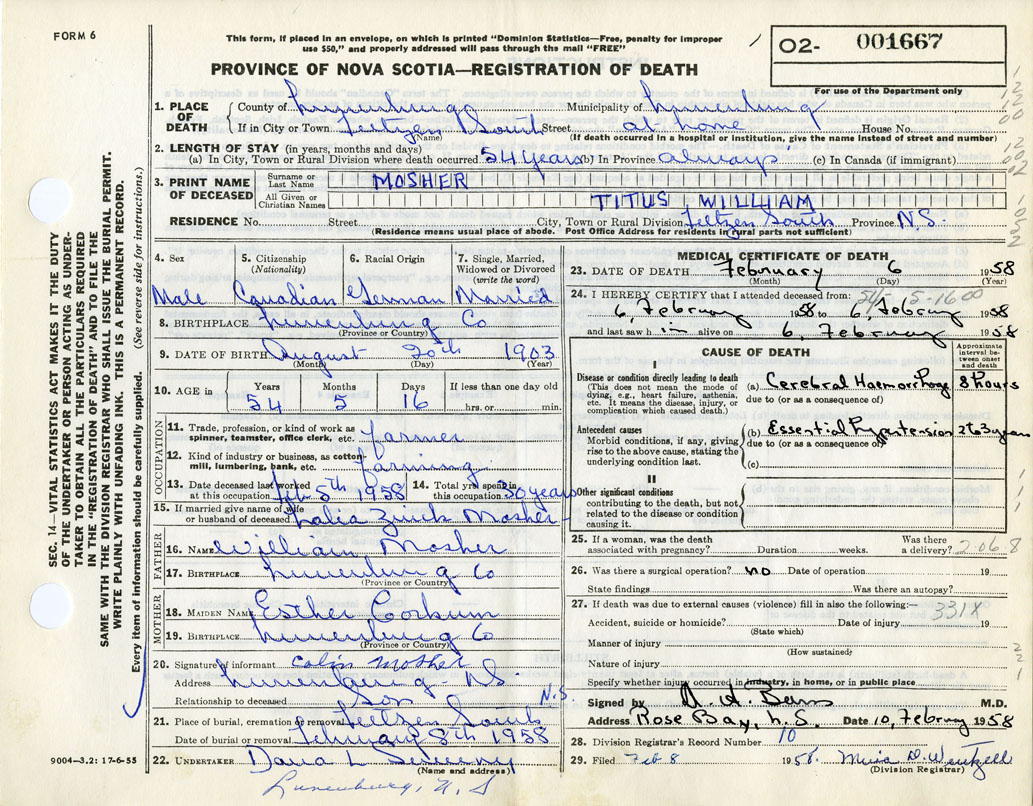 FORM 6
This form, if placed in an envelope, on which is printed "Dominion Statistics—Free, penalty for improper
use $50," and properly addressed will pass through the mail "FREE"
02- 001667
For use of the Department only
PROVINCE OF NOVA SCOTIA—REGISTRATION OF DEATH
1. PLACE OF DEATH
County of Lunenburg Municipality of Lunenburg
If in City or Town Feltzen South Street at home House No.
(Name) (If death occurred in a hospital or institution, give the name instead of street and number)
2. LENGTH OF STAY (in years, months and days)
(a) In City, Town or Rural Division where death occurred 54 years (b) In Province always (c) In Canada (if immigrant)
3. PRINT NAME OF DECEASED
Surname or Last Name MOSHER
All Given or Christian Names TITUS WILLIAM
RESIDENCE No. Street City, Town or Rural Division Feltzen South Province N.S.
(Residence means usual place of abode. Post Office Address for residents in rural parts not sufficient)
4. Sex Male
5. Citizenship (Nationality) Canadian
6. Racial Origin German
7. Single, Married, Widowed or Divorced (write the word) Married
8. BIRTHPLACE Lunenburg Co
(Province or Country)
9. DATE OF BIRTH August 20th 1903
(Month) (Day) (Year)
10. AGE in Years Months Days If less than one day old
54 5 16 hrs. or min.
OCCUPATION
11. Trade, profession, or kind of work as
spinner, teamster, office clerk, etc. farmer
12. Kind of industry or business, as cotton-
mill, lumbering, bank, etc. farming
13. Date deceased last worked
at this occupation Feb 5th 1958
14. Total yrs spent in
this occupation 30 years
15. If married give name of wife
or husband of deceased Lalia Zinck Mosher
FATHER
16. NAME William Mosher
17. BIRTHPLACE Lunenburg Co
(Province or Country)
MOTHER
18. MAIDEN NAME Esther Corkum
19. BIRTHPLACE Lunenburg Co
(Province or Country)
20. Signature of informant Colin Mosher
Address Lunenburg N.S.
Relationship to deceased Son
N.S.
21. Place of burial, cremation or removal Feltzen South
Date of burial or removal February 8th 1958
22. UNDERTAKER Dana L Sweeny
(Name and address)
Lunenburg, N.S
9004—3.2: 17-6-55
MEDICAL CERTIFICATE OF DEATH
23. DATE OF DEATH February 6 1958
(Month) (Day) (Year)
24. I HEREBY CERTIFY that I attended deceased from:
6, February 1958 to 6, February 1958
and last saw him alive on 6, February 1958
CAUSE OF DEATH
Approximate interval between onset and death
I
Disease or condition directly leading to death
(This does not mean the mode of
dying, e.g., heart failure, asthenia,
etc. It means the disease, injury, or
complication which caused death.)
(a) Cerebral Haemorrhage 8 hours
due to (or as a consequence of)
Antecedent causes
Morbid conditions, if any, giving
rise to the above cause, stating the
underlying condition last.
(b) Essential Hypertension 2 to 3 years
due to (or as a consequence of)
(c)
II
Other significant conditions
contributing to the death, but not
related to the disease or condition
causing it.
25. If a woman, was the death
associated with pregnancy? Duration weeks. Was there a delivery?
2068
26. Was there a surgical operation? no Date of operation 19
State findings Was there an autopsy?
27. If death was due to external causes (violence) fill in also the following:—
331X
Accident, suicide or homicide? Date of injury 19
(State which)
Manner of injury
(How sustained)
Nature of injury
Specify whether injury occurred in industry, in home, or in public place
Signed by M.D.
Address Rose Bay, N.S. Date 10, February 1958
28. Division Registrar's Record Number 10
29. Filed Feb 8 1958.
(Division Registrar)
SEC. 14—VITAL STATISTICS ACT MAKES IT THE DUTY
OF THE UNDERTAKER OR PERSON ACTING AS UNDER-
TAKER TO OBTAIN ALL THE PARTICULARS REQUIRED
IN THE "REGISTRATION OF DEATH" AND TO FILE THE
SAME WITH THE DIVISION REGISTRAR WHO SHALL ISSUE THE BURIAL PERMIT.
WRITE PLAINLY WITH UNFADING INK. THIS IS A PERMANENT RECORD.
Every item of information should be carefully supplied. (See reverse side for instructions.)